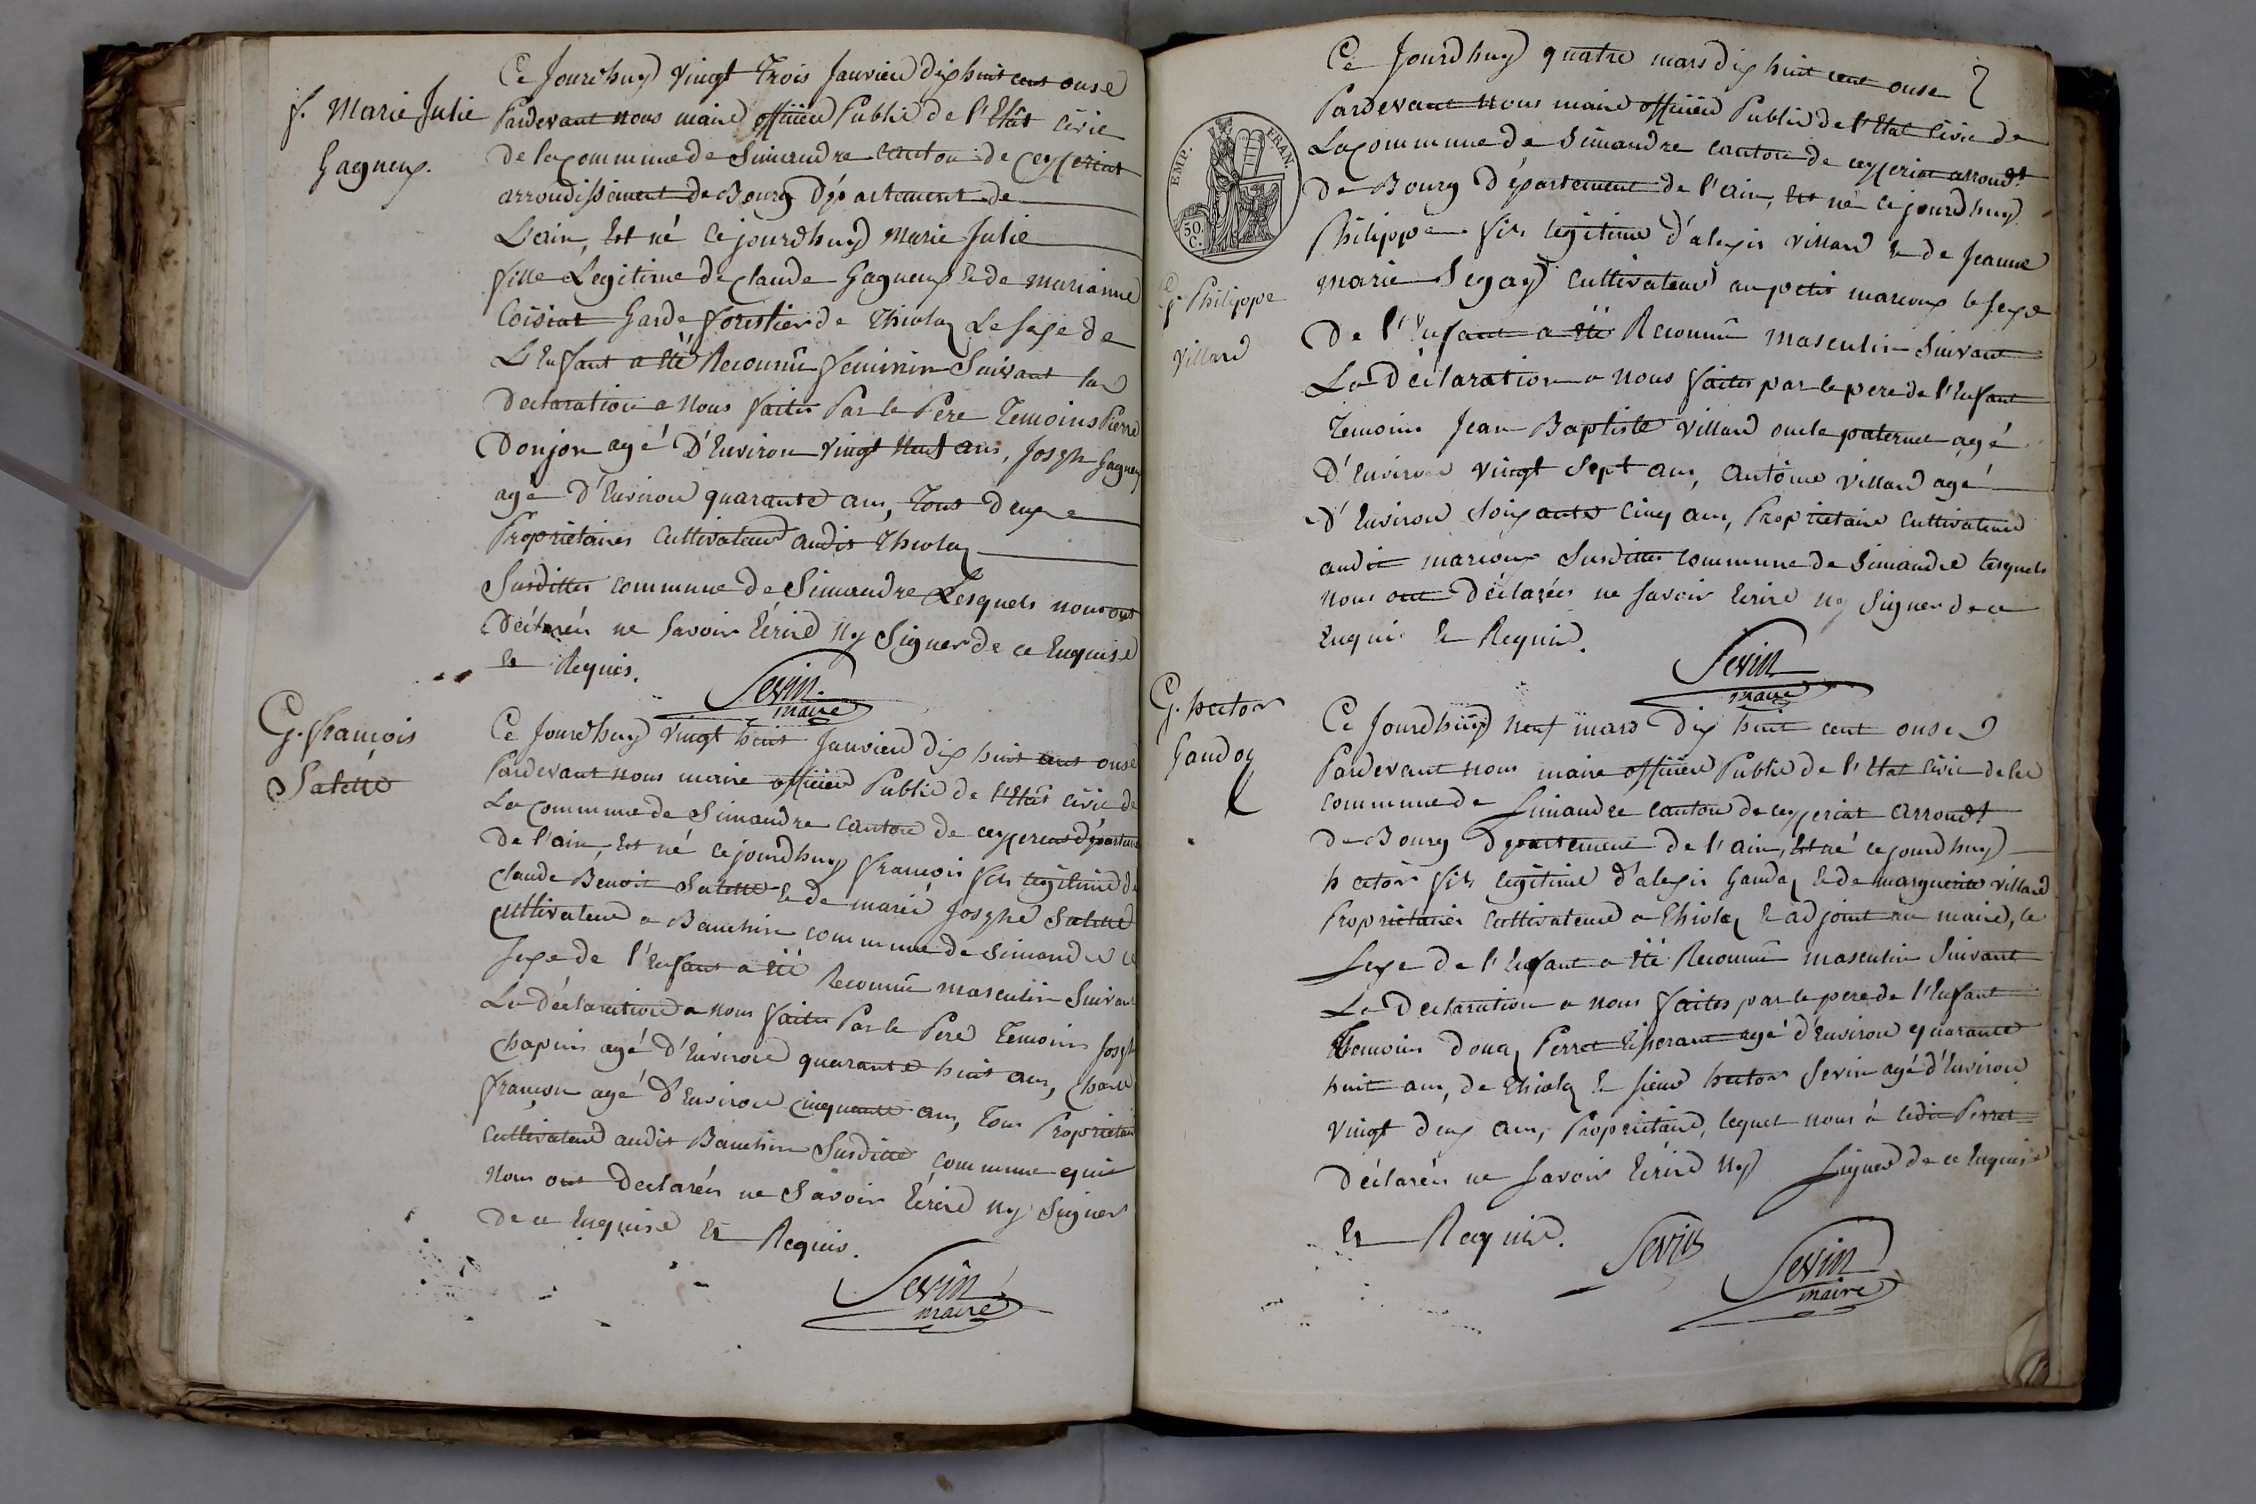 f. Marie Julie
Gagneux.
Ce Jourdhuy vingt Trois Janvier dix huit cent onse
Pardevant nous maire officier Public de l'Etat civil
de la commune de Simandre canton de ceyzeriat
arrondissement de Bourg Département de
L'ain, Est né cejourdhuy Marie Julie
fille Legitime de Claude Gagneux & de marianne
Coisiat Garde forestier de Thiolaz Le sexe de
L'Enfant a été Reconnû feminin Suivant la
Declaration a Nous faite Par le Pere Temoins Pierre
Donjon agé D'Environ vingt Neuf ans, Joseph Gagneux
agé D'Environ quarante ans, Tous deux
Propriétaires Cultivateur audit Thiolaz
Susditte commune de Simandre Lesquels nous ont
Déclarés ne savoir Ecrire Ny Signer de ce Enquise
& Requis.
Sevin
maire
G. françois
Salette
Ce Jourdhuy vingt huit Janvier dix huit cent onse
Pardevant nous maire officier Public de l'Etat civil de
La commune de Simandre canton de ceyzeriat départem
De l'ain, Est né cejourdhuy françois fils legitime de
Claude Benoit Salette & de marie Josephe Salette
Cultivateur a Bauchin commune de Simandre le
sexe de l'Enfant a été Reconnû masculin Suivant
La Déclaration a nous faite Par le Pere Temoins Joseph
Chapuis agé D'Environ quarante huit ans, Charle
françon agé D'Environ cinquante ans, Tous Propriétaire
Cultivateur audit Bauchin Susditte commune qui
Nous ont Declarés ne Savoir Ecrire ny Signer
De ce Enquise Et Requis.
Sevin
maire
EMP. FRAN.
50.
C.
G. Philippe
Villard
Ce Jourdhuy quatre mars dix huit cent onse
Pardevant Nous maire officier Public de l'Etat Civil de
La commune de Simandre canton de ceyzeriat arrondt
de Bourg Département de l'ain, Est né cejourdhuy
Philippe fils legitime d'alexis villard & de Jeanne
marie Segaud Cultivateur au petit marcoux le sexe
De l'Enfant a été Reconnû masculin Suivant
La Déclaration a Nous faite par le pere de l'Enfant
Temoins Jean Baptiste villard oncle paternel agé
D'Environ vingt Sept ans, antoine villard agé
D'Environ soixante cinq ans, Propriétaire Cultivateur
audit marcoux Susditte commune de Simandre lesquels
nous ont Déclarés ne savoir Ecrire ny Signer de ce
Enquis & Requis.
Sevin
maire
G. hector
Gauday
Ce Jourdhuy neuf mars dix huit cent onse
Pardevant nous maire officier Public de l'Etat Civil de la
commune de Simandre canton de ceyzeriat arrondt
de Bourg Département de l'ain, Est né cejourdhuy
hector fils legitime d'alexis Gauday & de marguerite villard
Propriétaire Cultivateur a Thiolaz & adjoint au maire, le
sexe de l'Enfant a été Reconnû masculin Suivant
La Déclaration a nous faite par le pere de l'Enfant
Temoins Perret agé d'Environ quarante
huit ans, de Thiolaz & sieur hector Sevin agé d'Environ
vingt deux ans, Propriétaire, lequel nous à ledit Perret
Déclarés ne savoir Ecrire Ny Signer de ce Enquise
Et Requise.
Sevin
Sevin
maire